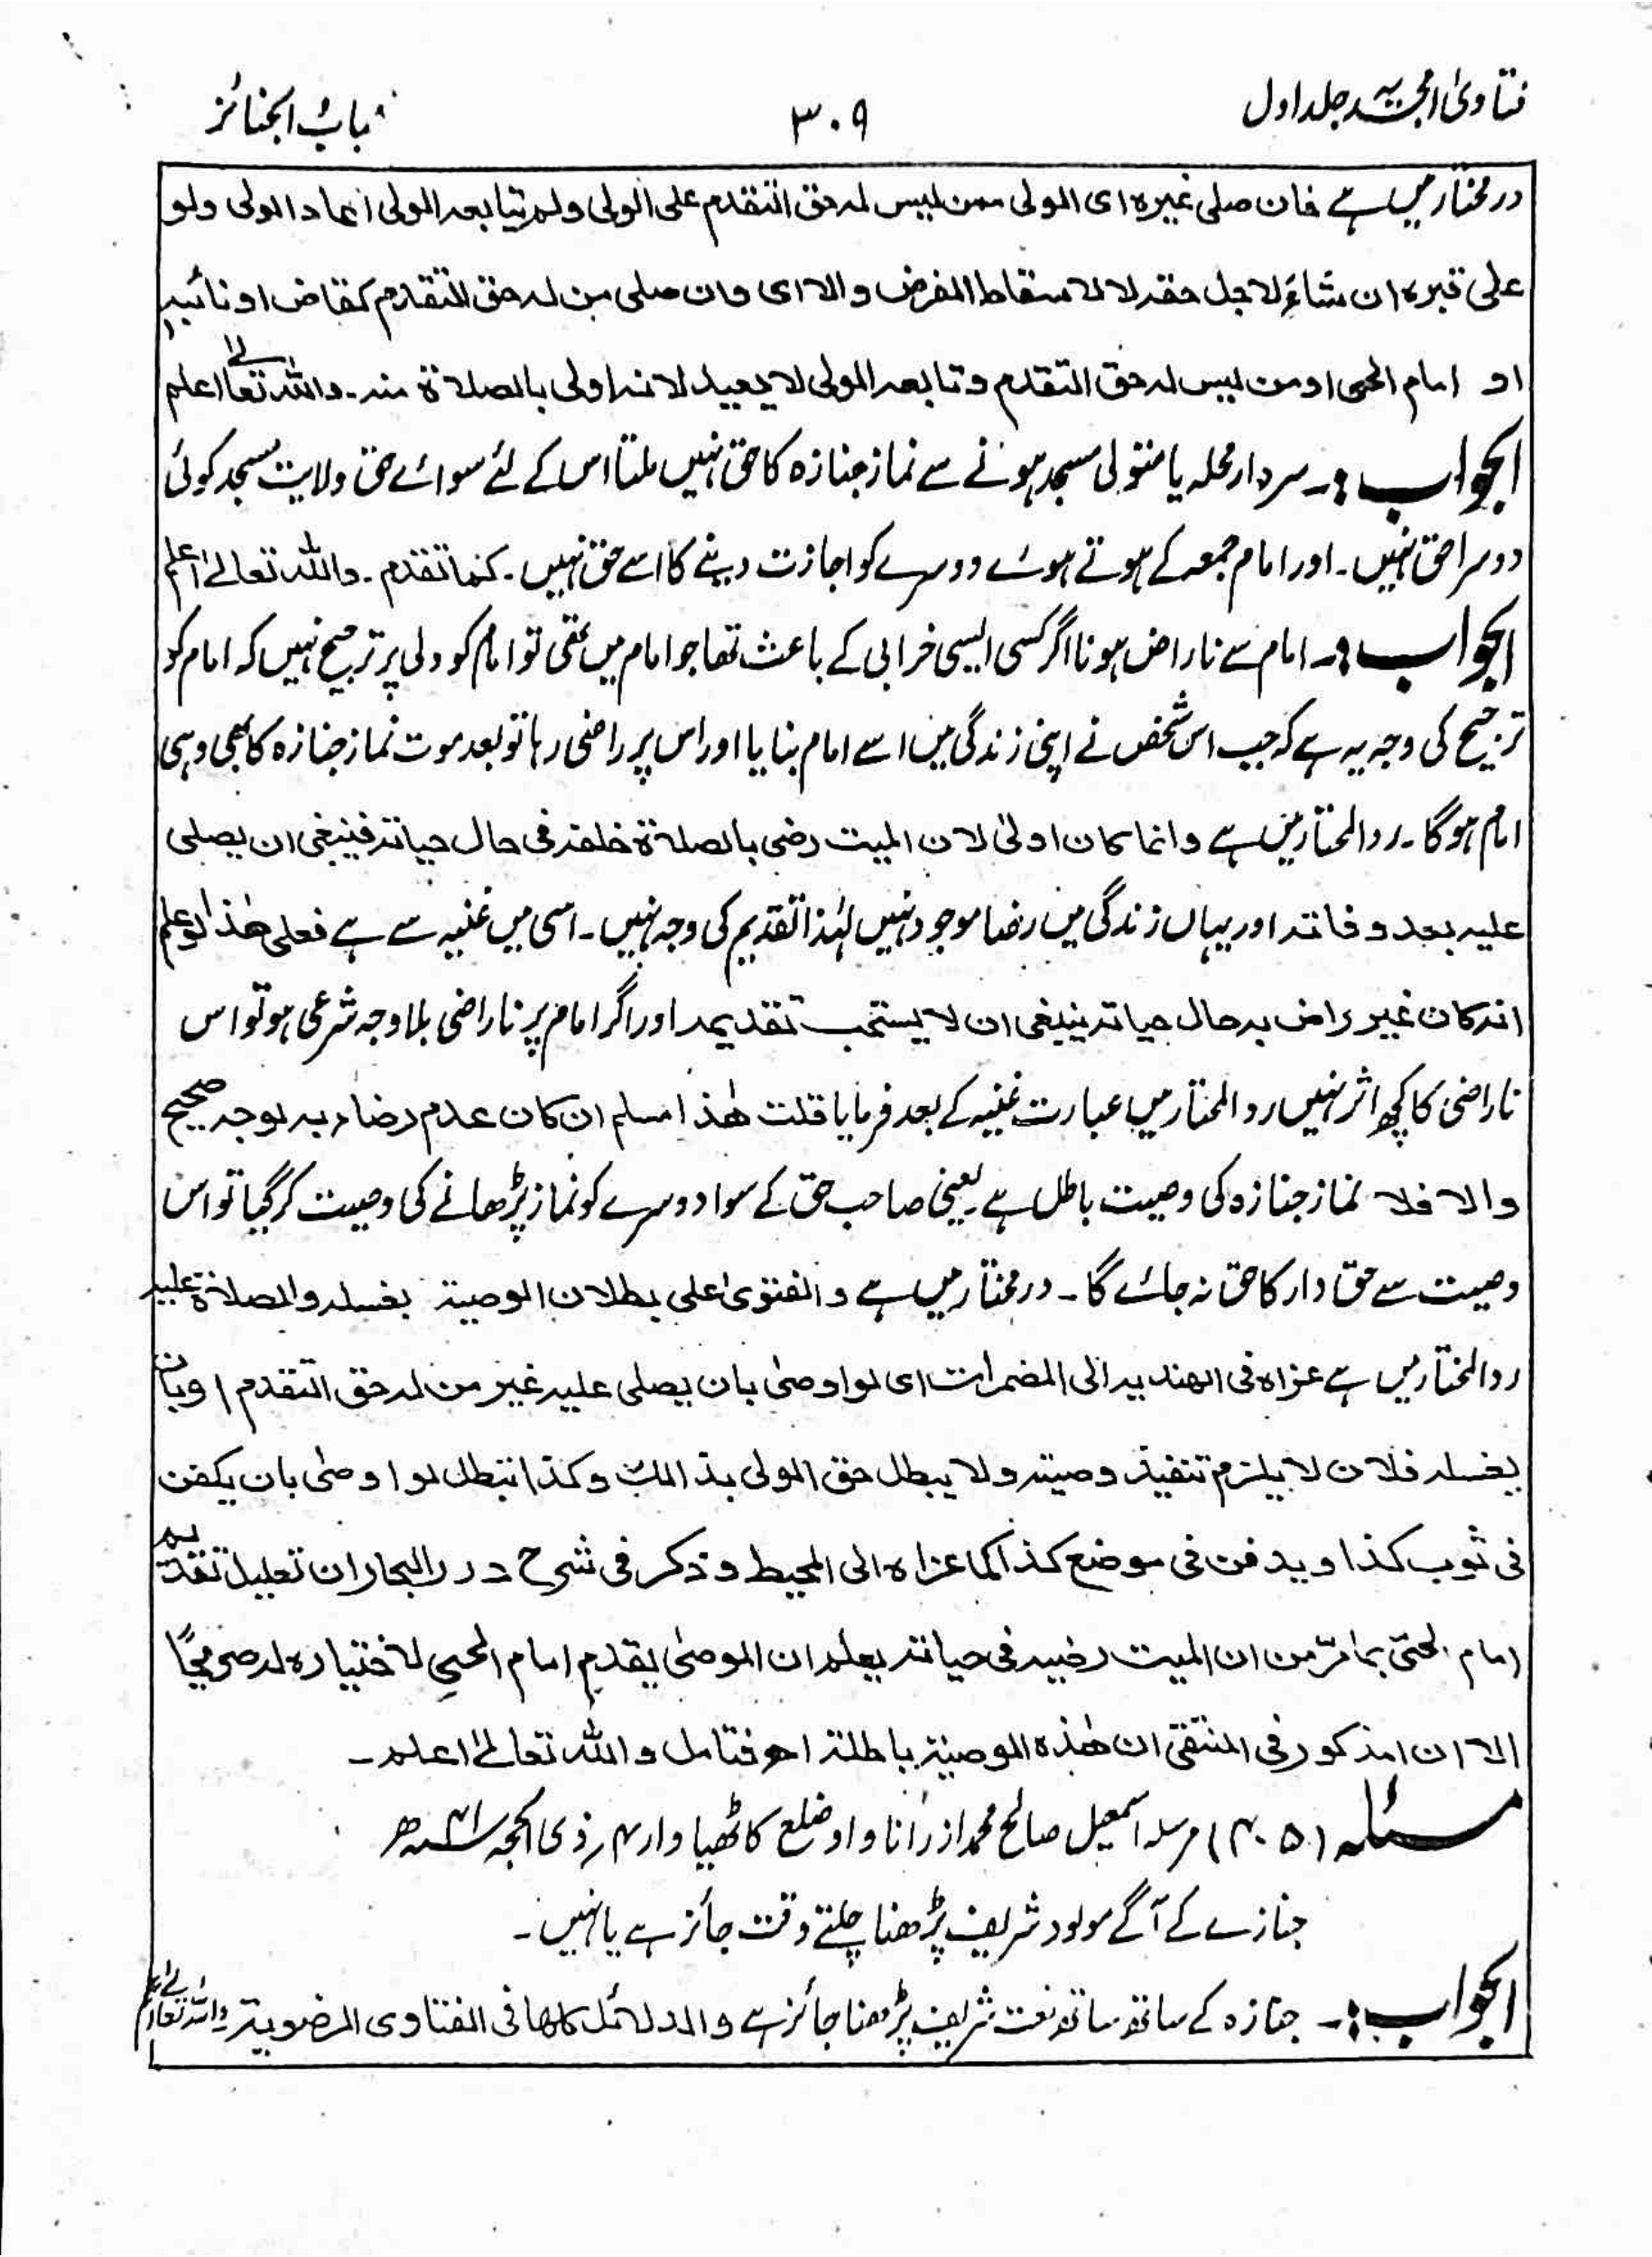 فتاویٰ امجدیہ جلد اول
۳۰۹
باب الجنائز
درمختار میں ہے فان صلی غیرہ ای الولی ممن لیس لہ حق التقدم علی الولی ولم یتابعہ الولی اعاد الولی ولو
علی قبرہ ان شاء لاجل حقہ لا لاسقاط الفرض والا ای وان صلی من لہ حق التقدم کقاض او نائبہ
او امام الحی او من لیس لہ حق التقدم وتابعہ الولی لا یعید لانہ اولی بالصلاۃ منہ۔ واللہ تعالےٰ اعلم
الجواب:۔ سردار محلہ یا متولی مسجد ہونے سے نماز جنازہ کا حق نہیں ملتا اس کے لئے سوائے حق ولایت مسجد کوئی
دوسرا حق نہیں۔ اور امام جمعہ کے ہوتے ہوئے دوسرے کو اجازت دینے کا اسے حق نہیں۔ کما تقدم۔ واللہ تعالےٰ اعلم
الجواب:۔ امام سے ناراض ہونا اگر کسی ایسی خرابی کے باعث تھا جو امام میں تھی تو امام کو ولی پر ترجیح نہیں کہ امام کو
ترجیح کی وجہ یہ ہے کہ جب اس شخص نے اپنی زندگی میں اسے امام بنایا اور اس پر راضی رہا تو بعد موت نماز جنازہ کا بھی وہی
امام ہوگا۔ ردالمحتار میں ہے وانما کان اولیٰ لان المیت رضی بالصلاۃ خلفہ فی حال حیاتہ فینبغی ان یصلی
علیہ بعد وفاتہ اور یہاں زندگی میں رضا موجود نہیں لہٰذا تقدیم کی وجہ نہیں۔ اسی میں غنیہ سے ہے فعلی ھٰذا لو علم
انہ کان غیر راض بہ حال حیاتہ ینبغی ان لا یستحب تقدیمہ اور اگر امام پر ناراضی بلا وجہ شرعی ہو تو اس
ناراضی کا کچھ اثر نہیں ردالمحتار میں عبارت غنیہ کے بعد فرمایا قلت ھٰذا مسلم ان کان عدم رضاءہ بہ لوجہ صحیح
والا فلا نماز جنازہ کی وصیت باطل ہے یعنی صاحب حق کے سوا دوسرے کو نماز پڑھانے کی وصیت کر گیا تو اس
وصیت سے حق دار کا حق نہ جائے گا۔ درمختار میں ہے والفتویٰ علی بطلان الوصیۃ بغسلہ والصلاۃ علیہ
ردالمحتار میں ہے عزاہ فی الھندیہ الی المضمرات ای لو اوصیٰ بان یصلی علیہ غیر من لہ حق التقدم او بان
یغسلہ فلان لا یلزم تنفیذ وصیتہ ولا یبطل حق الولی بذالک وکذا تبطل لو اوصیٰ بان یکفن
فی ثوب کذا او یدفن فی موضع کذا کما عزاہ الی المحیط وذکر فی شرح درر البحار ان تعلیل تقدیم
امام الحیّ بما مرّ من ان المیت رضیہ فی حیاتہ یعلم ان الموصیٰ یقدم امام الحیِ لاختیارہ لہ صریحًا
الا ان المذکور فی المنتقیٰ ان ھٰذہ الوصیۃ باطلۃ اھ فتامل واللہ تعالےٰ اعلم۔
مسئلہ (۴۰۵) مرسلہ اسمٰعیل صالح محمد از رانا واؤ ضلع کاٹھیاوار ۴ر ذی الحجہ ۴۱ھ
جنازے کے آگے مولود شریف پڑھنا چلتے وقت جائز ہے یا نہیں۔
الجواب:۔ جنازہ کے ساتھ ساتھ نعت شریف پڑھنا جائز ہے والدلائل کلھا فی الفتاوی الرضویۃ واللہ تعالےٰ اعلم